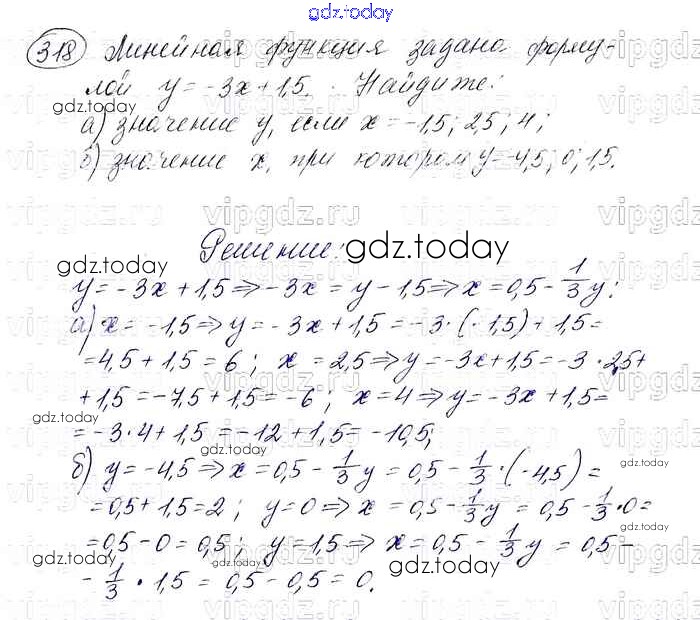 gdz.today
318 Линейная функция задана форму-
лой y = -3x + 1,5. Найдите:
gdz.today
а) значение y, если x = -1,5; 2,5; 4;
б) значение x, при котором y = -4,5; 0; 1,5.
gdz.today
vipgdz.ru vipgdz.ru vipgdz
Решение: gdz.today
gdz.today
y = -3x + 1,5 ⇒ -3x = y - 1,5 ⇒ x = 0,5 - 1/3 y;
а) x = -1,5 ⇒ y = -3x + 1,5 = -3 · (-1,5) + 1,5 =
= 4,5 + 1,5 = 6; x = 2,5 ⇒ y = -3x + 1,5 = -3 · 2,5 +
+ 1,5 = -7,5 + 1,5 = -6; x = 4 ⇒ y = -3x + 1,5 =
gdz.today
= -3 · 4 + 1,5 = -12 + 1,5 = -10,5;
gdz.today
б) y = -4,5 ⇒ x = 0,5 - 1/3 y = 0,5 - 1/3 · (-4,5) =
= 0,5 + 1,5 = 2; y = 0 ⇒ x = 0,5 - 1/3 y = 0,5 - 1/3 · 0 =
gdz.today
= 0,5 - 0 = 0,5; y = 1,5 ⇒ x = 0,5 - 1/3 y = 0,5 -
gdz.today gdz.today
- 1/3 · 1,5 = 0,5 - 0,5 = 0.